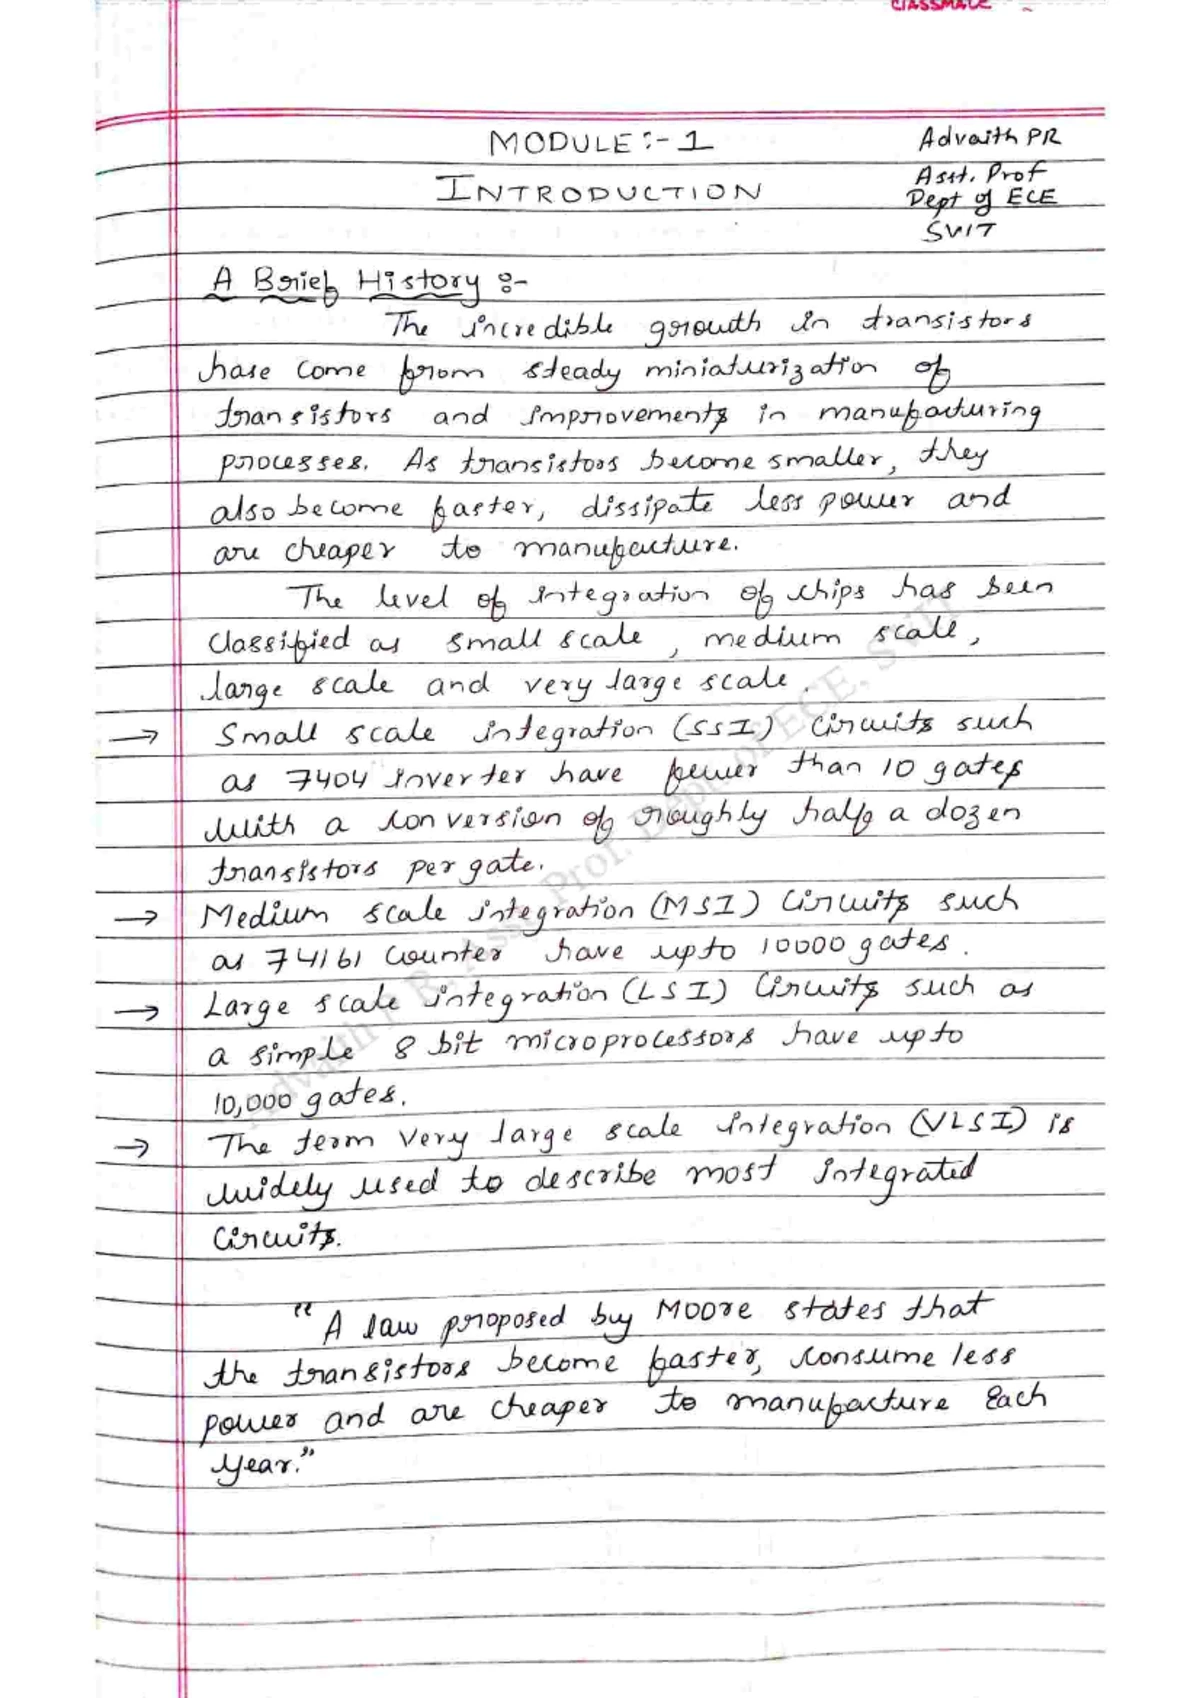 classmate
MODULE:- 1
INTRODUCTION
Advaith PR
Asst. Prof
Dept of ECE
SVIT
A Brief History :-
The incredible growth in transistors
have come from steady miniaturization of
transistors and improvements in manufacturing
processes. As transistors become smaller, they
also become faster, dissipate less power and
are cheaper to manufacture.
The level of integration of chips has been
classified as small scale, medium scale,
large scale and very large scale.
→ Small scale integration (SSI) circuits such
as 7404 inverter have fewer than 10 gates
with a conversion of roughly half a dozen
transistors per gate.
→ Medium scale integration (MSI) circuits such
as 74161 counter have upto 10000 gates.
→ Large scale integration (LSI) circuits such as
a simple 8 bit microprocessors have upto
10,000 gates.
→ The term very large scale integration (VLSI) is
widely used to describe most integrated
circuits.
"A law proposed by MOORE states that
the transistors become faster, consume less
power and are cheaper to manufacture each
year."
Advaith P R, Asst. Prof. Dept of ECE, SVIT